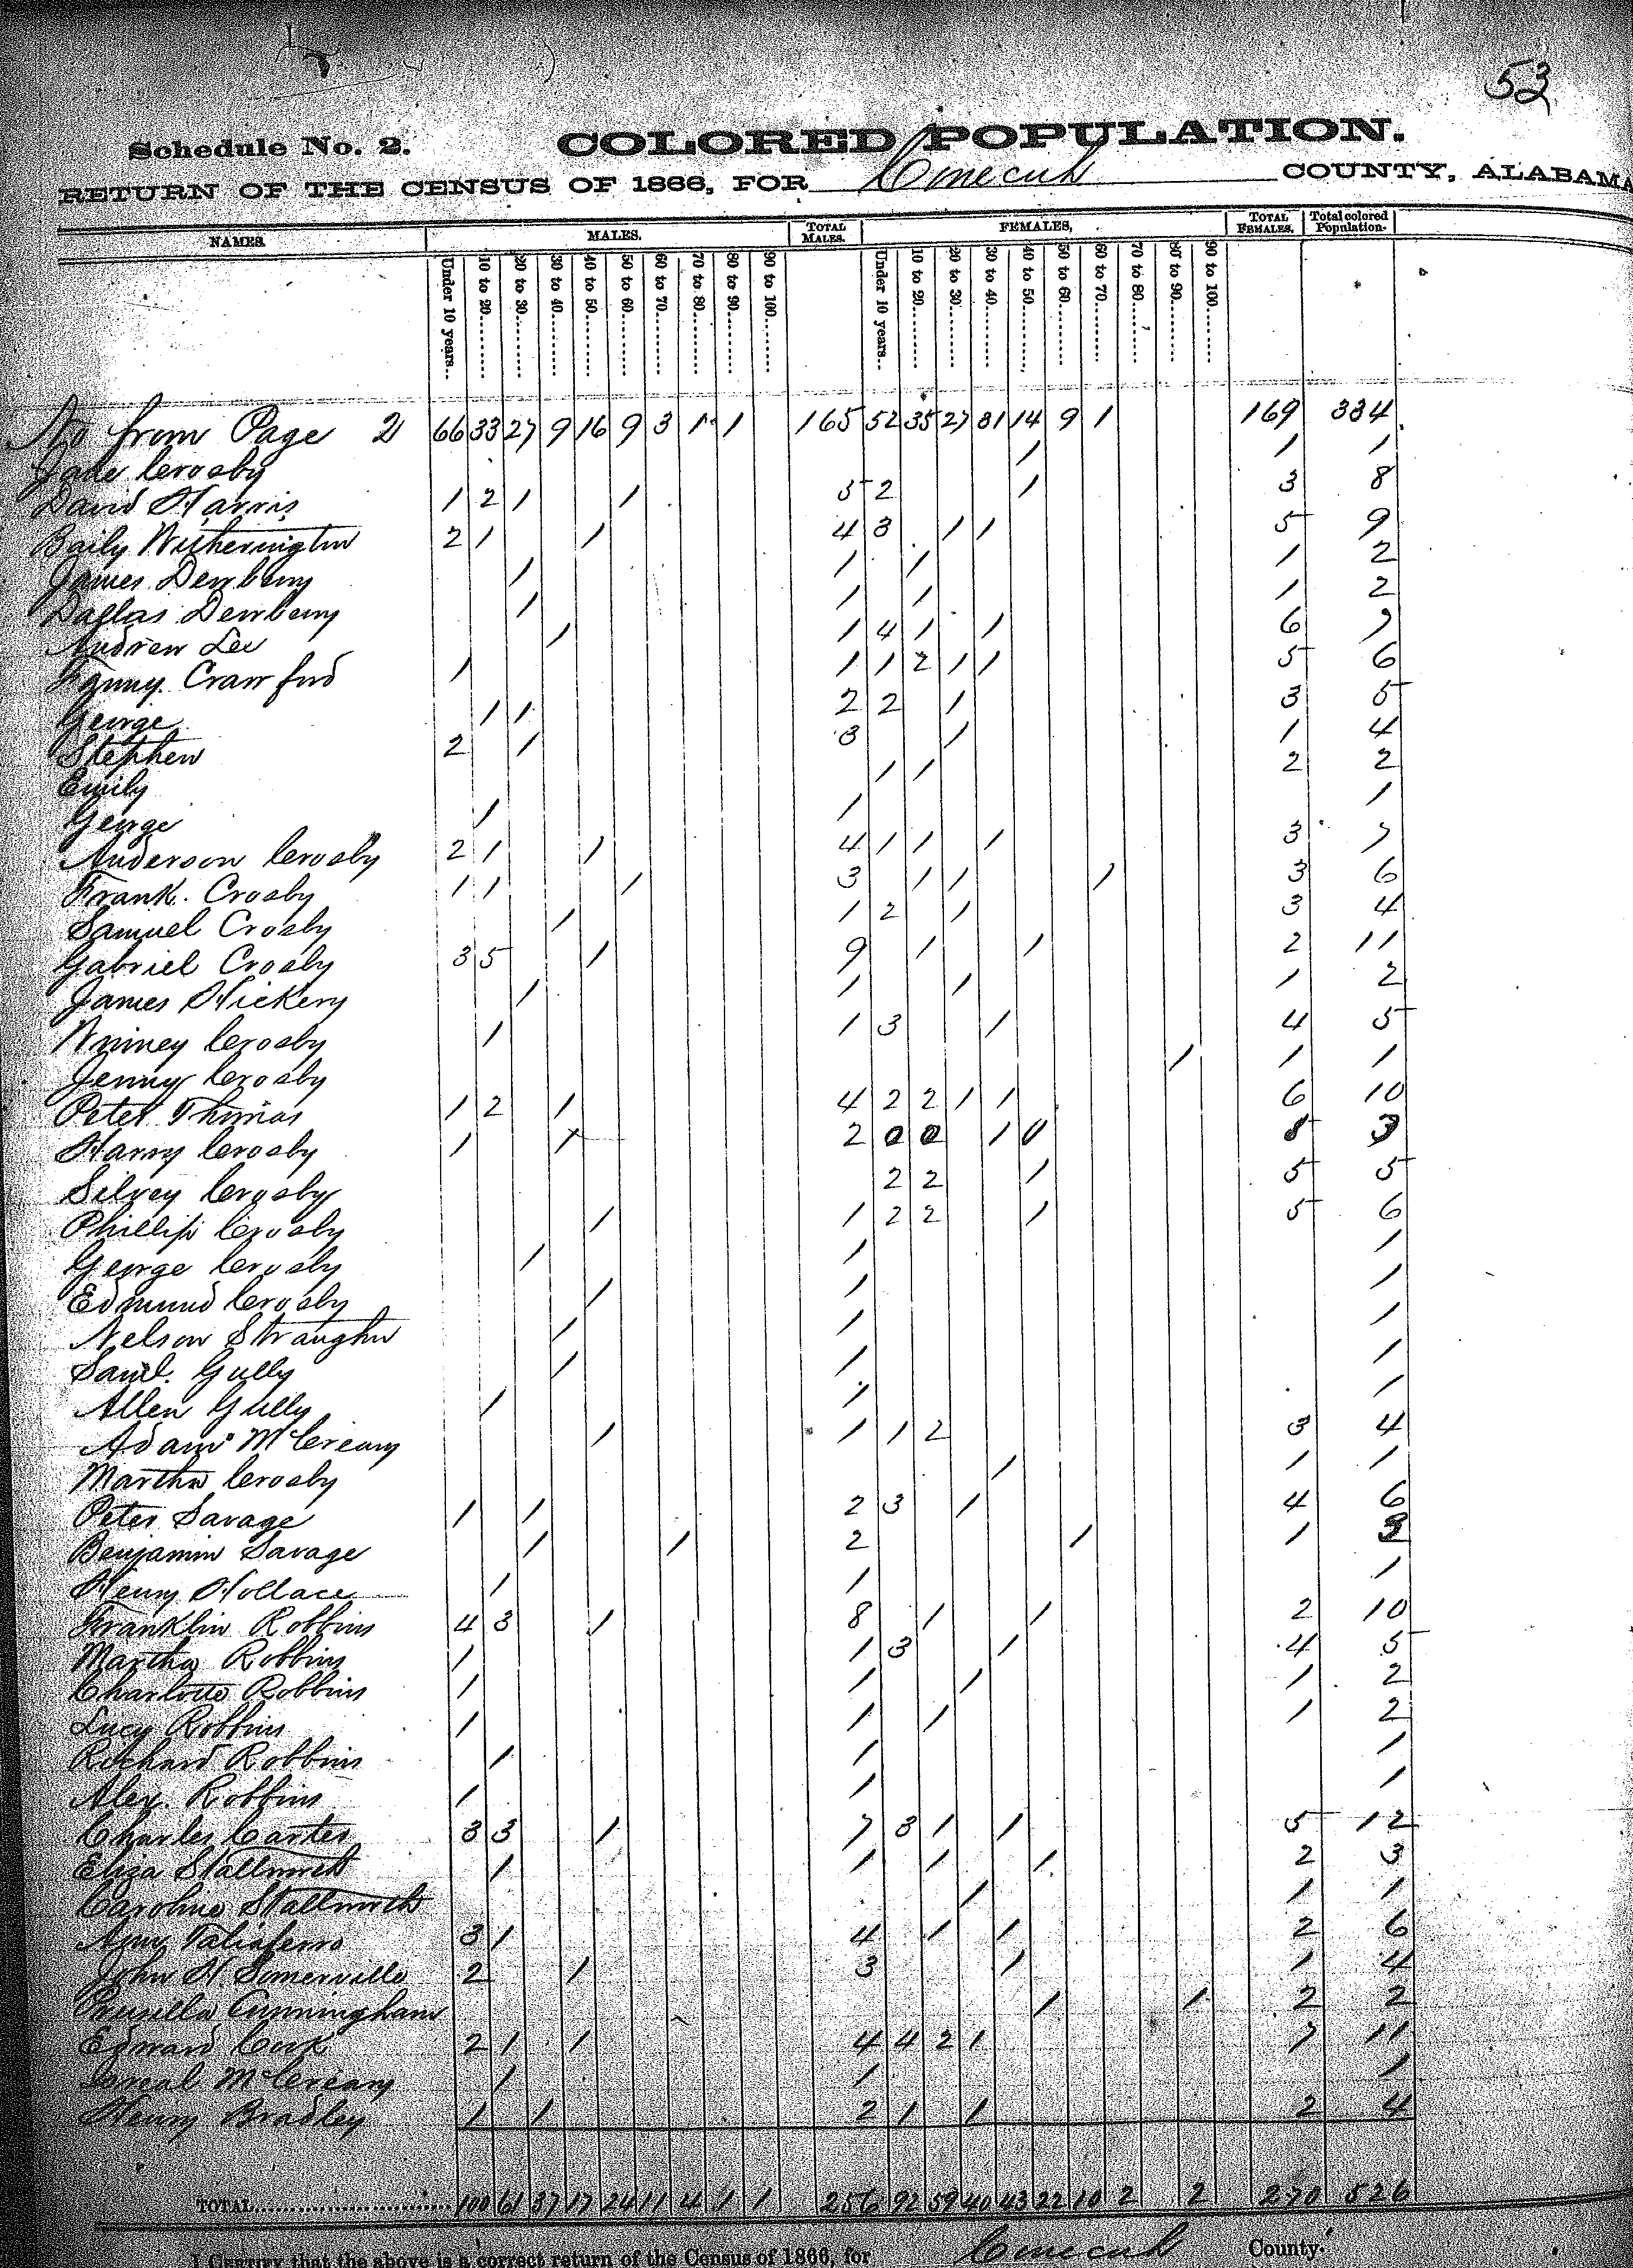 53
Schedule No. 2. COLORED POPULATION.
RETURN OF THE CENSUS OF 1866, FOR Conecuh COUNTY, ALABAMA
NAMES. MALES. TOTAL MALES. FEMALES, TOTAL FEMALES. Total colored Population.
Under 10 years... 10 to 20......... 20 to 30......... 30 to 40......... 40 to 50......... 50 to 60......... 60 to 70......... 70 to 80......... 80 to 90......... 90 to 100......... Under 10 years.. 10 to 20......... 20 to 30......... 30 to 40......... 40 to 50......... 50 to 60......... 60 to 70......... 70 to 80......... 80 to 90......... 90 to 100.........
from Page 2 66 33 27 9 16 9 3 1 1 165 52 35 27 31 14 9 1 169 334
Jane Crosby 1 1 1
David Harris 1 2 1 1 5 2 1 3 8
Baily Witherington 2 1 1 4 3 1 1 5 9
James Dewberry 1 1 1 1 2
Dallas Dewberry 1 1 1 1 2
Andrew Lee 1 1 4 1 1 6 7
Fanny Crawford 1 1 1 2 1 1 5 6
George 1 1 2 2 1 3 5
Stephen 2 1 3 1 1 4
Emily 1 1 2 2
George 1 1 1
Anderson Crosby 2 1 1 4 1 1 1 3 7
Frank. Crosby 1 1 1 3 1 1 1 3 6
Samuel Crosby 1 1 2 1 3 4
Gabriel Crosby 3 5 1 9 1 1 2 11
James Hickery 1 1 1 1 2
Winney Crosby 1 1 3 1 4 5
Jenny Crosby 1 1 1
Peter Thomas 1 2 1 4 2 2 1 1 6 10
Harry Crosby 1 1 2 0 0 1 0 3
Silvey Crosby 2 2 1 5 5
Phillip Crosby 1 1 2 2 1 5 6
George Crosby 1 1 1
Edmund Crosby 1 1 1
Nelson Straughn 1 1 1
Saml. Gully 1 1 1
Allen Gully 1 1 1
Adam McCreary 1 1 1 2 3 4
Martha Crosby 1 1 1
Peter Savage 1 1 2 3 1 4 6
Benjamin Savage 1 1 2 1 1 3
Henry Hollace 1 1 1
Franklin Robbins 4 3 1 8 1 1 2 10
Martha Robbins 1 1 3 1 4 5
Charlotte Robbins 1 1 1 1 2
Lucy Robbins 1 1 1 1 2
Richard Robbins 1 1 1
Alex. Robbins 1 1 1
Charles Carter 3 3 1 7 3 1 1 5 12
Eliza Stallworth 1 1 1 1 2 3
Caroline Stallworth 1 1 1
Amy Taliaferro 3 1 4 1 1 2 6
John H Somerville 2 1 3 1 1 4
Prusilla Cunningham 1 1 2 2
Edward Cook 2 1 1 4 4 2 1 7 11
McCreary 1 1 1
Henry Bradley 1 1 2 1 1 2 4
TOTAL 100 61 37 17 24 11 4 1 1 256 92 59 40 43 22 10 2 2 270 526
I CERTIFY that the above is a correct return of the Census of 1866, for Conecuh County.